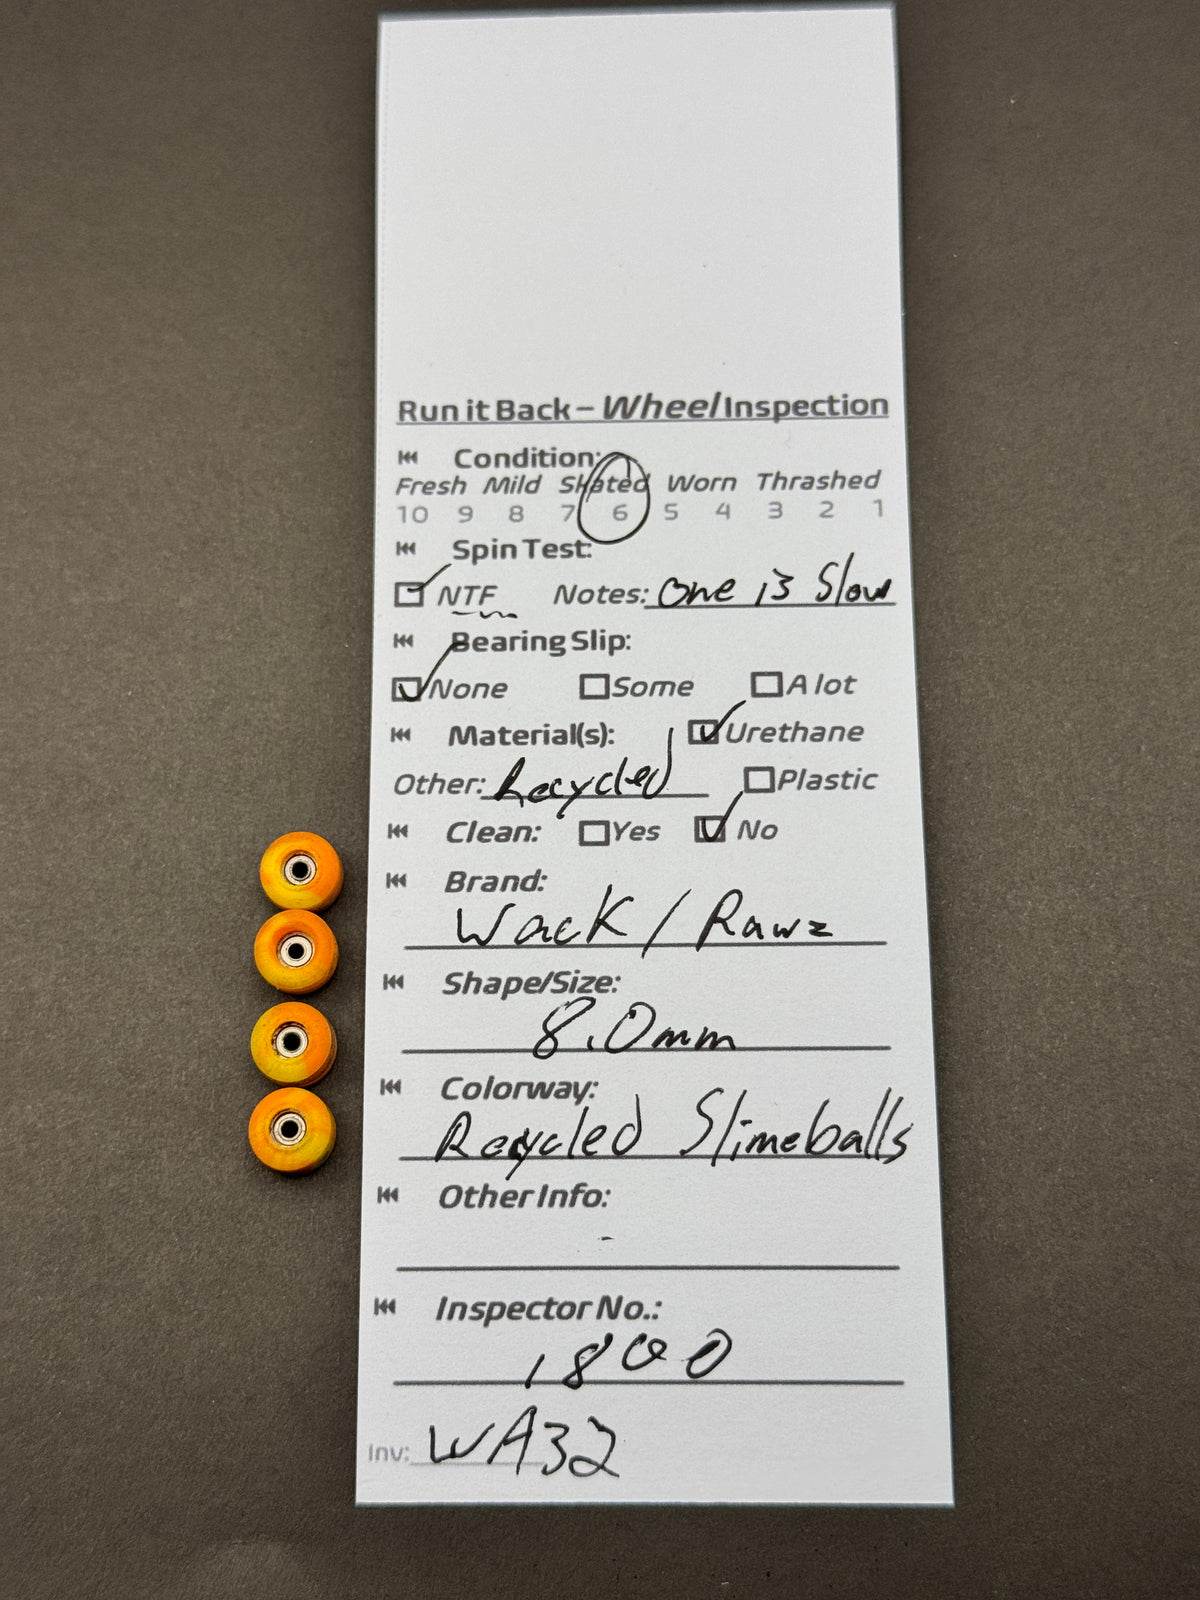 Run it Back – Wheel Inspection
Condition:
Fresh Mild Skated Worn Thrashed
10 9 8 7 6 5 4 3 2 1
Spin Test:
NTF Notes: One is Slow
Bearing Slip:
None Some A lot
Material(s): Urethane
Other: Recycled Plastic
Clean: Yes No
Brand:
Wack / Rawz
Shape/Size:
8.0mm
Colorway:
Recycled Slimeballs
Other Info:
-
Inspector No.:
1800
Inv: WA32